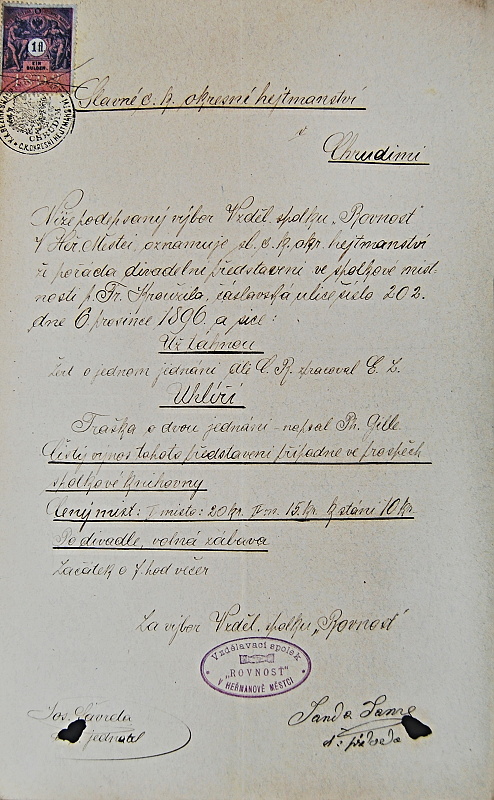 1 fl
EIN
GULDEN
C.K.OKRESNÍ HEJTMANSTVÍ
CHRUDIM
Slavné c. k. okresní hejtmanství
v
Chrudimi
Níže podepsaný výbor Vzděl. spolku „Rovnost“
v Heř. Městci, oznamuje sl. c. k. okr. hejtmanství
že pořádá divadelní představení ve spolkové míst-
nosti p. Fr. Kroužila, čáslavská ulice číslo 202.
dne 6 prosince 1896. a sice:
Už táhnou
Žert o jednom jednání dle C. R. zpracoval E. Z.
Uhlíři
Fraška o dvou jednání - napsal Ph. Gille.
Čistý výnos tohoto představení připadne ve prospěch
spolkové knihovny
Ceny míst: I místo: 20 kr. II. m. 15. kr. k stání 10 kr.
Po divadle, volná zábava
Začátek o 7. hod večer
Za výbor Vzděl. spolku „Rovnost“
Vzdělávací spolek
„ROVNOST“
V HEŘMANOVĚ MĚSTCI
Jos.
jednatel
Janda